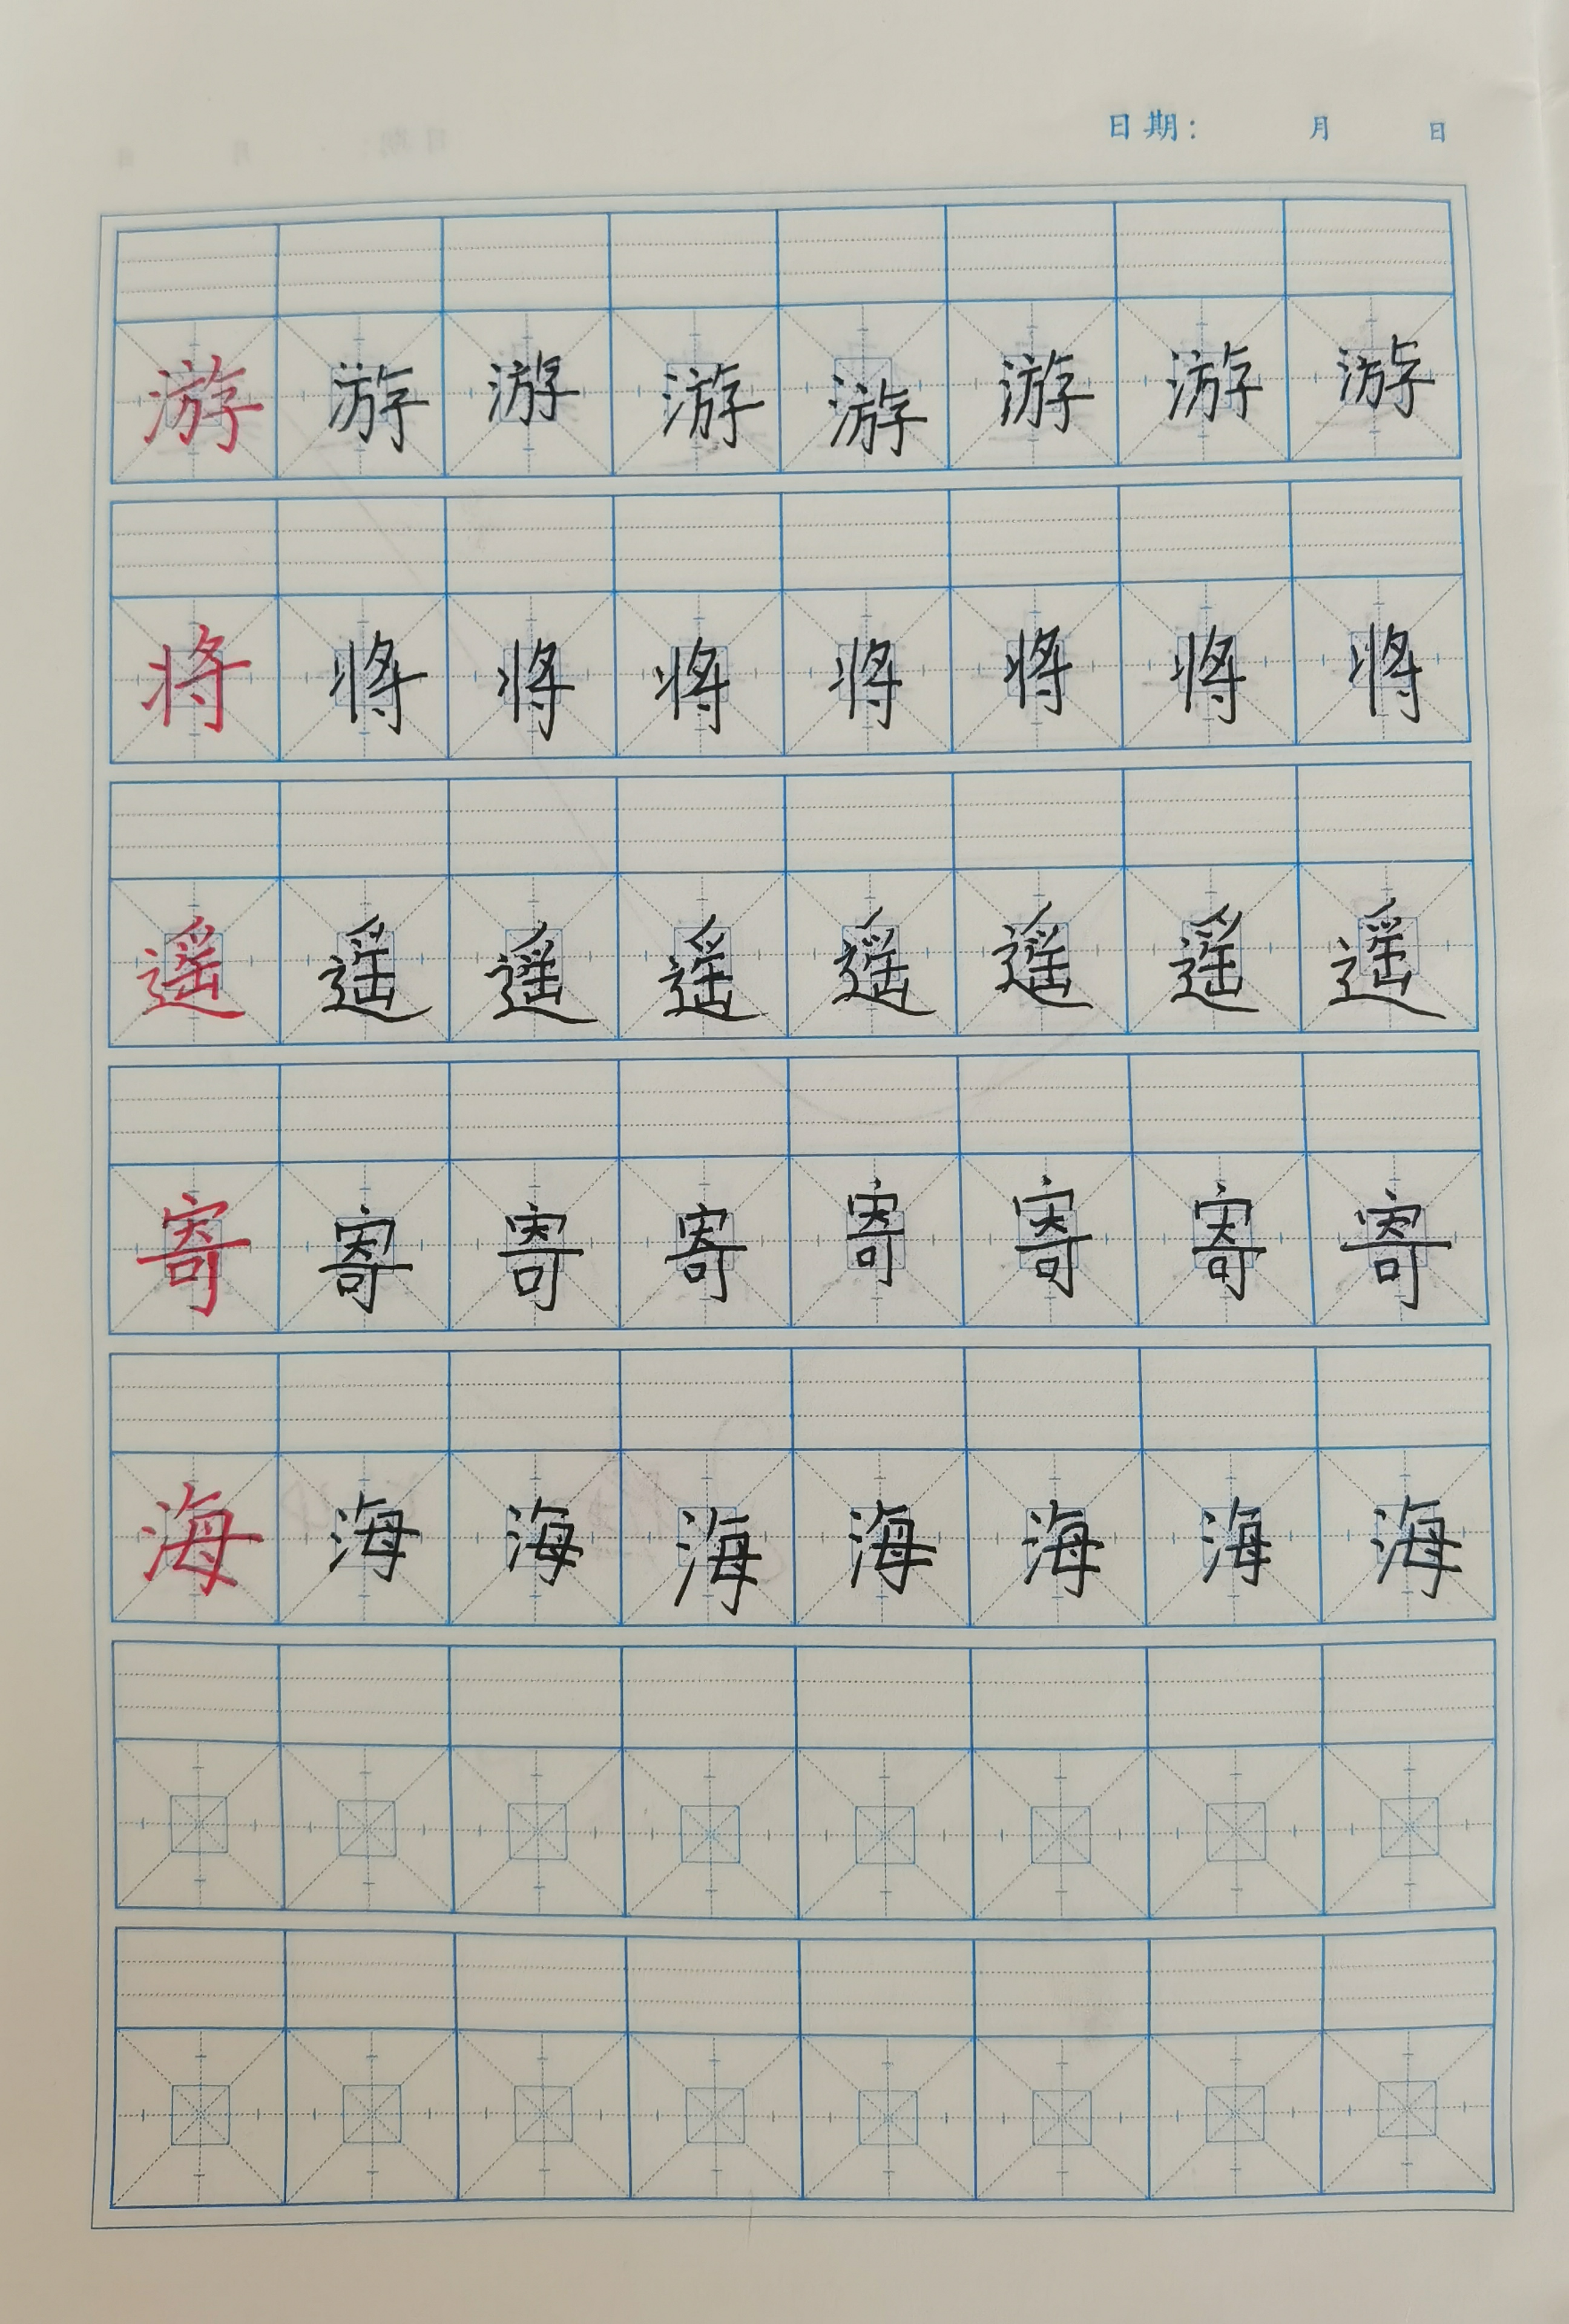 日期： 月 日
游 游 游 游 游 游 游 游
将 将 将 将 将 将 将 将
遥 遥 遥 遥 遥 遥 遥 遥
寄 寄 寄 寄 寄 寄 寄 寄
海 海 海 海 海 海 海 海